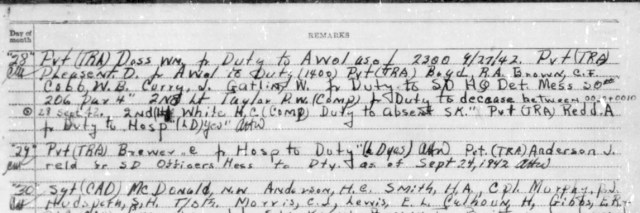 Day of month
REMARKS
"28" Pvt (TRA) Doss Wm, fr Duty to Awol as of 2300 9/27/42. Pvt (TRA)
Pleasent D. fr Awol to Duty (1400) Pvt (TRA) Boyd, R.A. Brown, C.F.
Cobb, W.B. Curry, J. Gatlin, W. fr Duty to SD HQ Det. Mess
206 Par 4" 2nd Lt Taylor R.W. (Comp) fr Duty to decease between
28 Sept 42. 2nd Lt White H.C. (Comp) Duty to absent SK." Pvt (TRA) Redd. A
fr Duty to Hosp "(LD) yes"
"29" Pvt (TRA) Brewer fr Hosp to Duty "(LD yes) Pvt. (TRA) Anderson J.
reld fr SD Officers Mess to Dty. as of Sept 29, 1942
"30" Sgt (CAD) McDonald, N.W. Anderson, H.C. Smith, H.A, Cpl. Murphy, P.J.
Hudspeth, S.H. T/5th. Morris, C.J, Lewis, E. L. Calhoun, H, Gibbs, L.R.